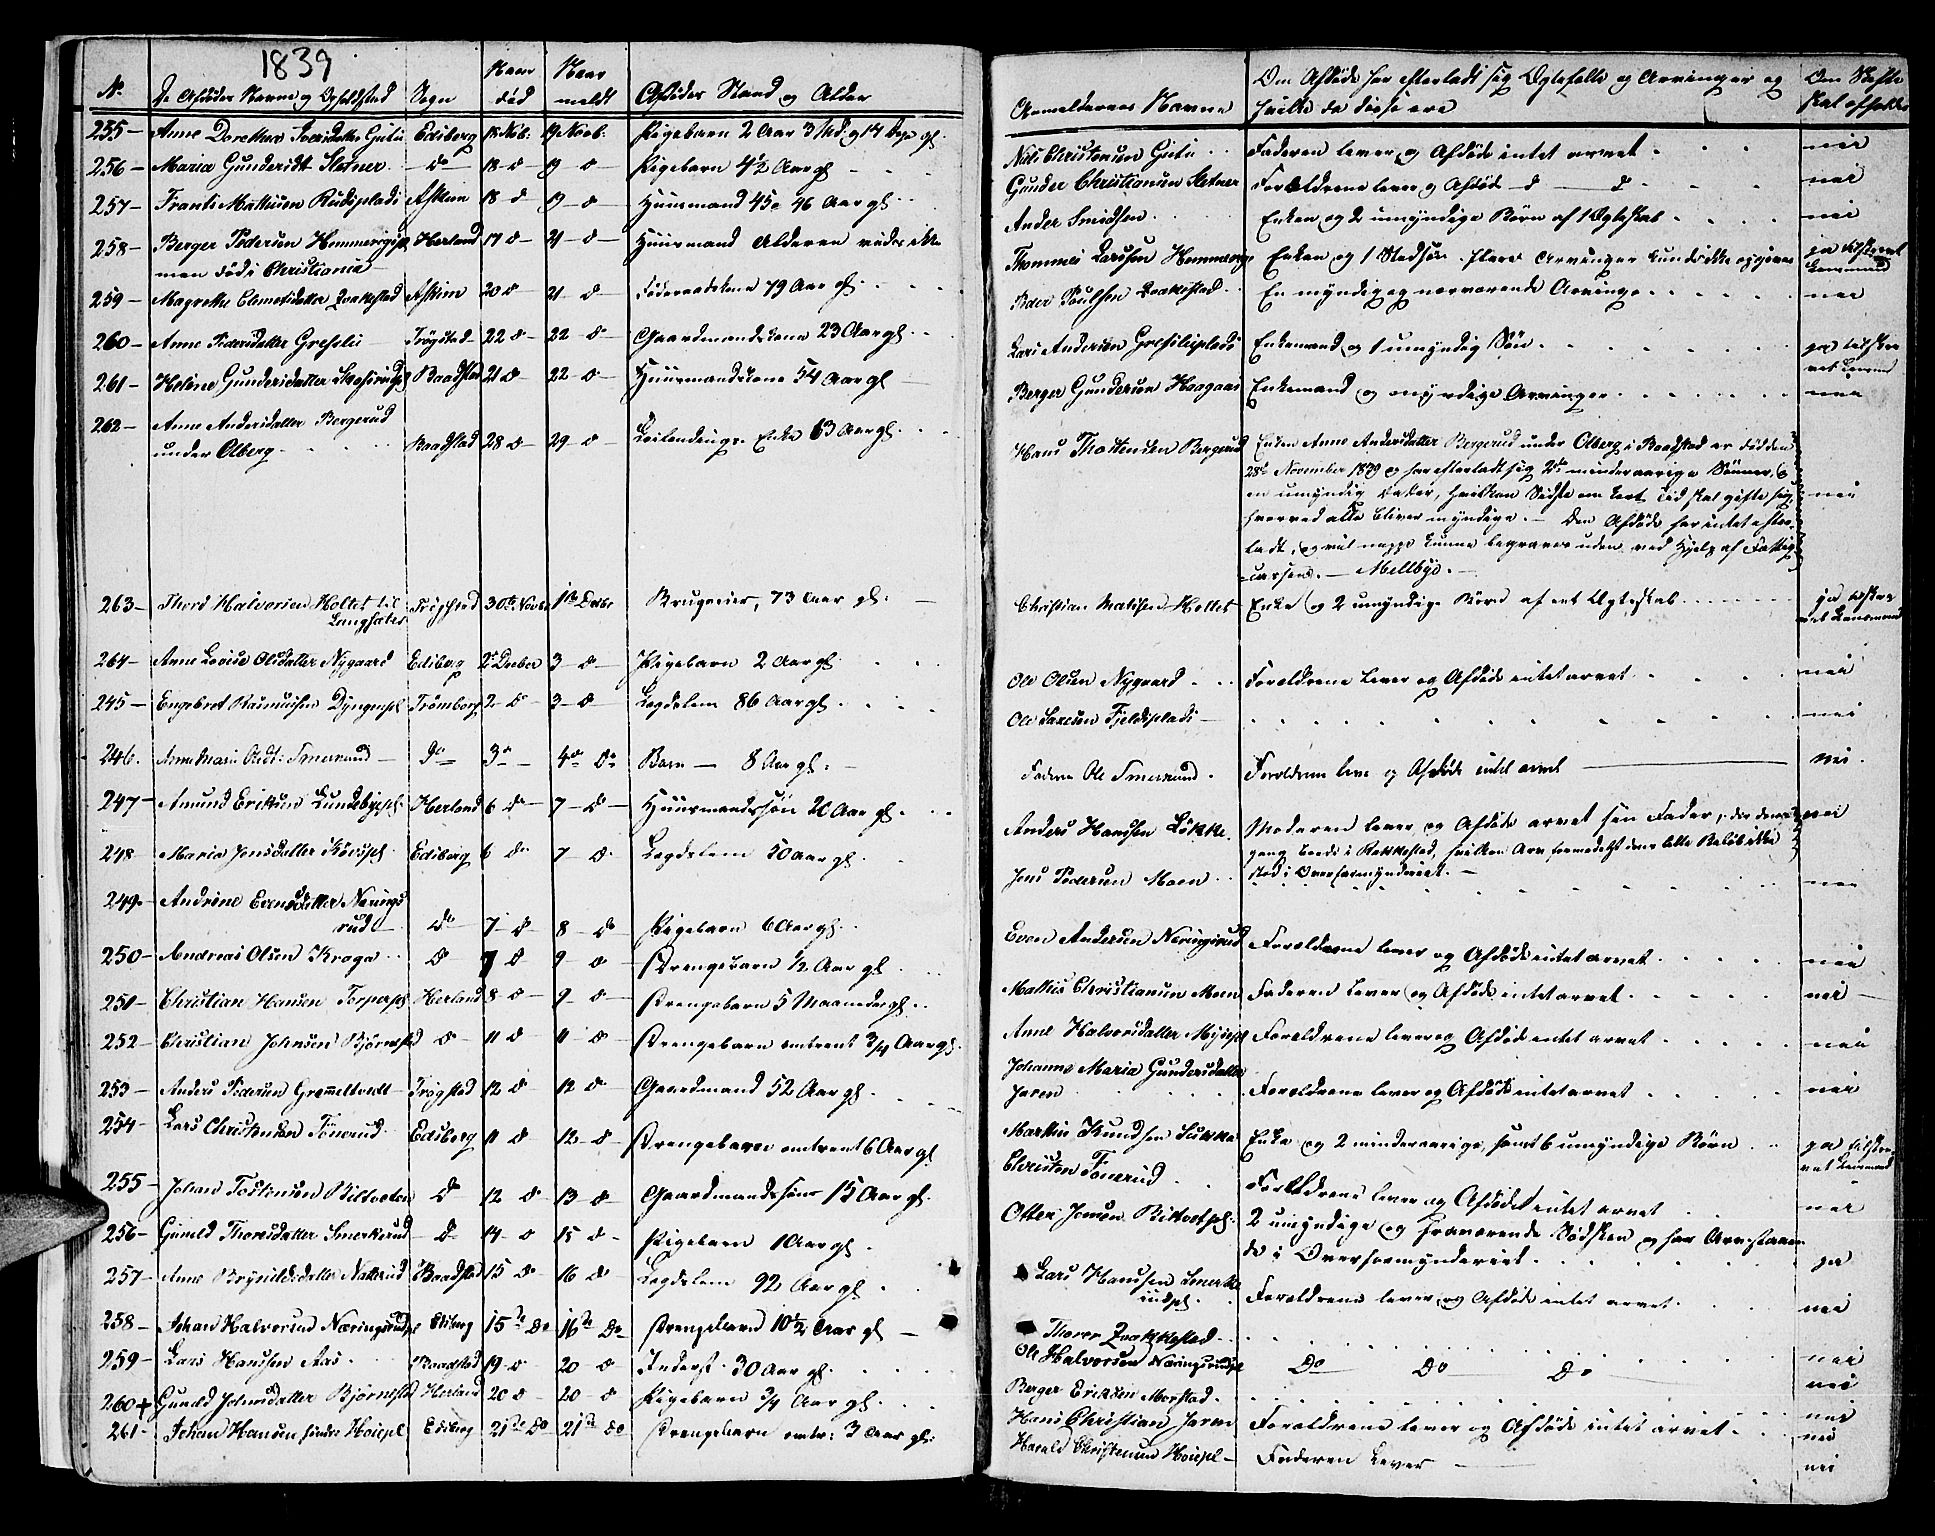 1839
N. De Afdødes Navne og Opholdsted Sogn Naar død Naar meldt Afdødes Stand og Alder
255 - Anne Dorethea Iversdatter Gutu Edsberg 18 Nvb: 19 Novb: Pigebarn 2 Aar 3 Md: og 14 Dage gl.
256 - Maria Gundersdt Sletner - do - 18 D 19 D - Pigebarn 4½ Aar gl
257 - Frants Mathisen Rudsplads Askim 18 d 19 D - Huusmand 45 a 46 Aar gl.
258 - Berger Pedersen Hemmingspl Herland 17 D - 21 - D - Huusmand Alderen vides ikke
men død i Christiania
259 - Magrethe Clemetsdatter Qvakestad Askim 20 D 21 D - Føderaadskone 79 Aar gl.
260 - Anne Pedersdatter Greslie Trøgstad 22 D - 22 - D - Gaardmandskone 23 Aar gl.
261 - Helene Gundersdatter Baadstad 21 D - 22 D - Huusmandskone 54 Aar gl -
262 - Anne Andersdatter Bergerud
under Olberg Baadstad 28 D - 29 - D - Leilendings Enke 63 Aar gl.
263 - Thord Halvorsen Holtet til Trøgstad 30te Novbr 1ste Decbr Brugseier, 73 Aar gl: -
Langsæter
264 - Anne Lovise Olsdatter Nygaard Edsberg 2 Decber 3 - D - Pigebarn 2 Aar gl.
245 - Engebret Rasmussen Dyngespl Trømborg 2 - D - 3 - D Legdslem 86 Aar gl.
246. Anne Marie Olsdt: Smerrund - Do 3 - 4 - Do Barn - 8 Aar gl. -
247 - Amund Eriksen Lundebyespl. Herland 6 D - 7 - D - Huusmandssøn 20 Aar gl.
248 Maria Jensdatter Edsberg 6 D 7 D. Legdslem 50 Aar gl.
249 - Andrine Evensdatter Nærings
rud Do 7 - D - 8 - D Pigebarn 6 Aar gl.
250 - Andreas Olsen Kraga D 7 D 9 D - Drengebarn ½ Aar gl.
251 - Christian Hansen Torperpl Herland 8 D - 9 D - Drengebarn 5 Maaneder gl.
252 - Christian Johnsen Bjørnstad D - 11 D 11 D - Drengebarn omtrent ¾ Aar gl.
253 - Anders Pedersen Grammeltvedt Trøgstad 12 D 12 D Gaardmand 52 Aar gl.
254 - Lars Christensen Fonerud Edsberg 11 D 12 - D Drengebarn omtrent 6 Aar gl
255 - Johan Tostensen Biltvedten D 12 D - 13 D - Gaardmandssøn 15 Aar gl.
256 - Gunild Thoresdatter Smerkerud - D - 14 - D 15 D - Pigebarn 1 Aar gl.
257 - Anne Brynildsdatter Nattrud Baadstad 15 D - 16 D Legdslem 92 Aar gl.
258 - Johan Halvorsen Næringsrudpl Edsberg 15de Do 16de Do Drengebarn 10½ Aar gl -
259 - Lars Hanssen Aas Baadstad 19 D 20 D Inderst 30 Aar gl.
260+ Gunild Johnsdatter Bjørnestad Herland 20 D 20 - D Pigebarn ¾ Aar gl.
261 - Johan Hansen Høiepl Edsberg 21de Do 21de Do Drengebarn omtr: 3 Aar gl:
Anmeldernes Navne Om Afdøde har efterladt sig Ægtefælle og Arvinger og hvilke da disse ere Om Skifte skal afholdes
Niels Christensen Gutu Faderen lever og Afdøde intet arvet nei
Gunder Christiansen Sletner Forældrene lever og Afdøde - d - d nei
Ander Smidsen Enken og 2 umyndige Børn af 1 Ægteskab nei
Thommes Larssen Hemming Enken og 1 Stedsøn. flere Arvinger kunde ikke opgives ja tilskrevet
Lensmand
Peder Poulsen Qvakestad En myndig og nærværende Arving nei
Lars Andersen Gresliesplads Enkemand og 1 umyndig Søn ja tilskre
vet Lensmd
Berger Gundersen Haagaas Enkemand og myndige Arvinger nei
Hans Thostensen Bergerud Enken Anne Andersdatter Bergerud under Olberg i Baadstad er død den
28de November 1839 og har efterladt sig 2de minderaarige Sønner, og
en umyndig Datter, hvilken Sidste om kort Tid skal gifte sig, nei
hvorved alle bliver myndige. - Den Afdøde har intet efter-
ladt, og vil neppe kunne begraves uden ved Hjelp af Fattig-
cassen. - Mellbye. -
Christian Mathisen Holtet Enke og 2 umyndige Børn af eet Ægteskab ja tilskre
vet Lensmand
Ole Olsen Nygaard Forældrene lever og Afdøde intet arvet nei
Ole Larsen Fjeldsplads - nei
Faderen Ole Smerrund. Forældrene leve og Afdøde intet arvet nei.
Anders Hanssen Løkke Moderen lever og Afdøde arvet sin Fader, der den nei
gang boede i Rakkestad, hvilken Arv formedelst dens lille Beløb ikke
stod i Overformynderiet. -
Jens Pedersen Moen nei
Even Andersen Næringsrud Forældrene lever og Afdøde intet arvet nei
Mathis Christiansen Moen Faderen lever og Afdøde intet arvet nei -
Anne Halvorsdatter Forældrene lever og Afdøde intet arvet nei
Johanne Maria Gundersdatter
Jaren Forældrene lever og Afdøde intet arvet nei
Martin Knudsen Enke og 2 minderaarige, samt 6 umyndige Børn ja tilskre
vet Lensmand
Christen Fonerud Forældrene lever og Afdødet intet arvet nei
Otter Jensen Biltvetpl. 2 umyndige og fraværende Sødsken og har Arv staaen
de i Overformynderiet. ja
Lars Hanssen Smerke
rudpl. Forældrene lever og Afdøde intet arvet nei
Thorer Qvakkestad nei
Ole Halvorsen Næringsrudpl Do Do Do nei
Berger Eriksen Morstad. nei
Hans Christian Jaren Forældrene lever og Afdøde intet arvet nei
Harald Christensen Høiepl - Faderen Lever - nei